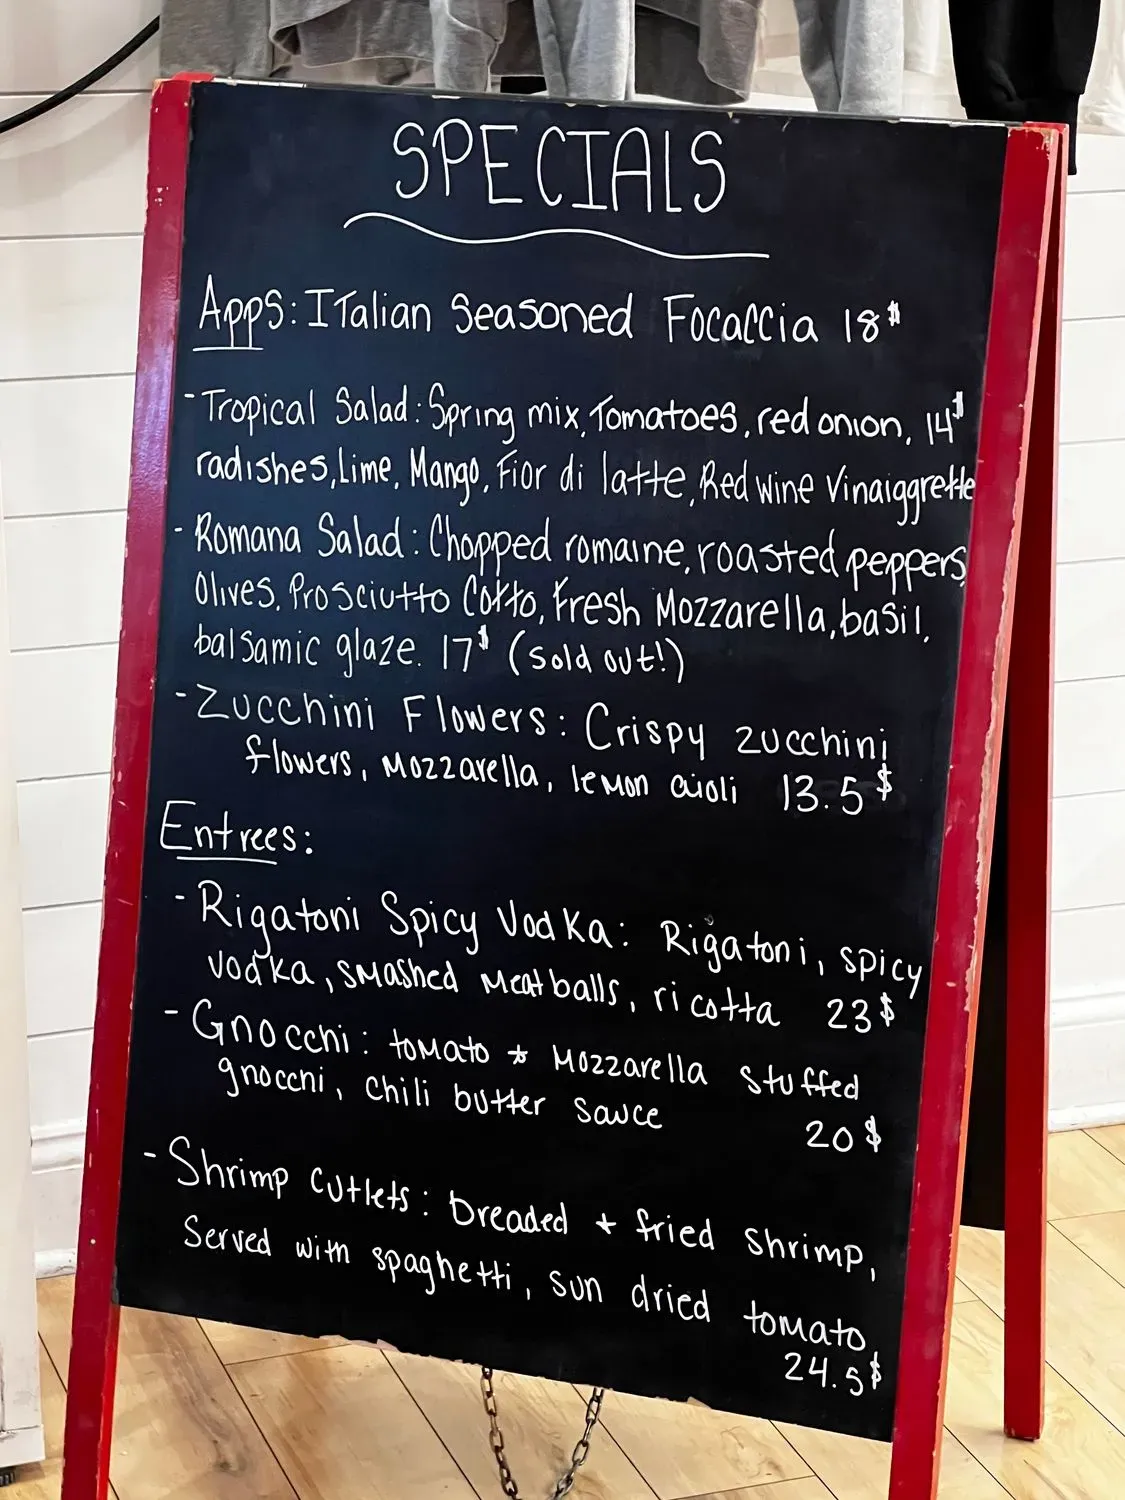 SPECIALS
Apps: Italian Seasoned Focaccia 18$
- Tropical Salad: Spring mix, Tomatoes, red onion, 14$
radishes, Lime, Mango, Fior di latte, Red wine Vinaiggrette
- Romana Salad: Chopped romaine, roasted peppers,
Olives, Prosciutto Cotto, Fresh Mozzarella, basil,
balsamic glaze. 17$ (Sold out!)
- Zucchini Flowers: Crispy zucchini
flowers, mozzarella, lemon aioli 13.5$
Entrees:
- Rigatoni Spicy Vodka: Rigatoni, spicy
vodka, smashed meatballs, ricotta 23$
- Gnocchi: tomato + mozzarella stuffed
gnocchi, chili butter sauce 20$
- Shrimp Cutlets: breaded + fried shrimp,
Served with spaghetti, sun dried tomato
24.5$